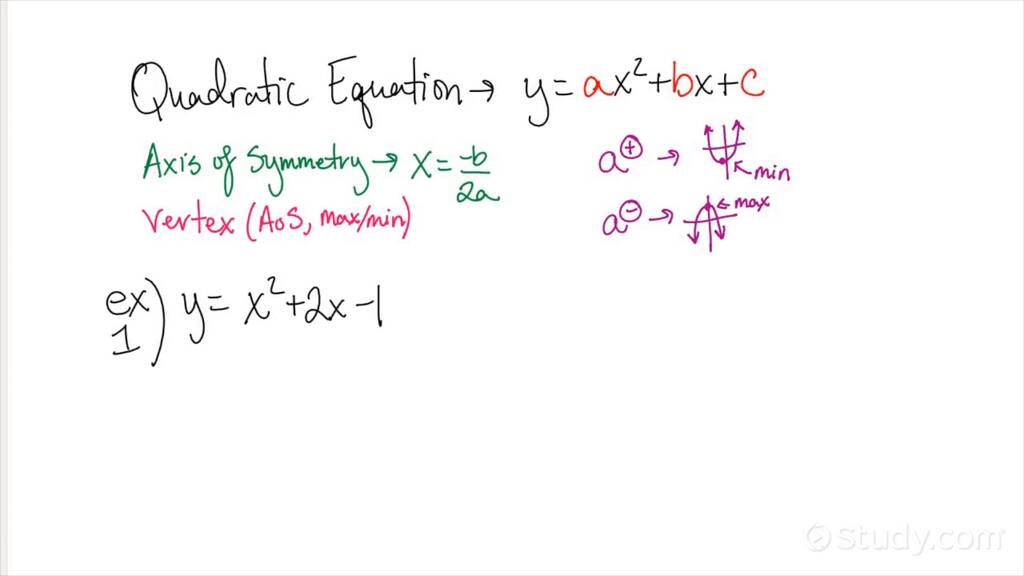 Quadratic Equation → y = ax²+bx+c
Axis of Symmetry → x = -b/2a
a⊕ → min
Vertex (AoS, max/min)
a⊖ → ← max
ex 1) y = x²+2x-1
Study.com